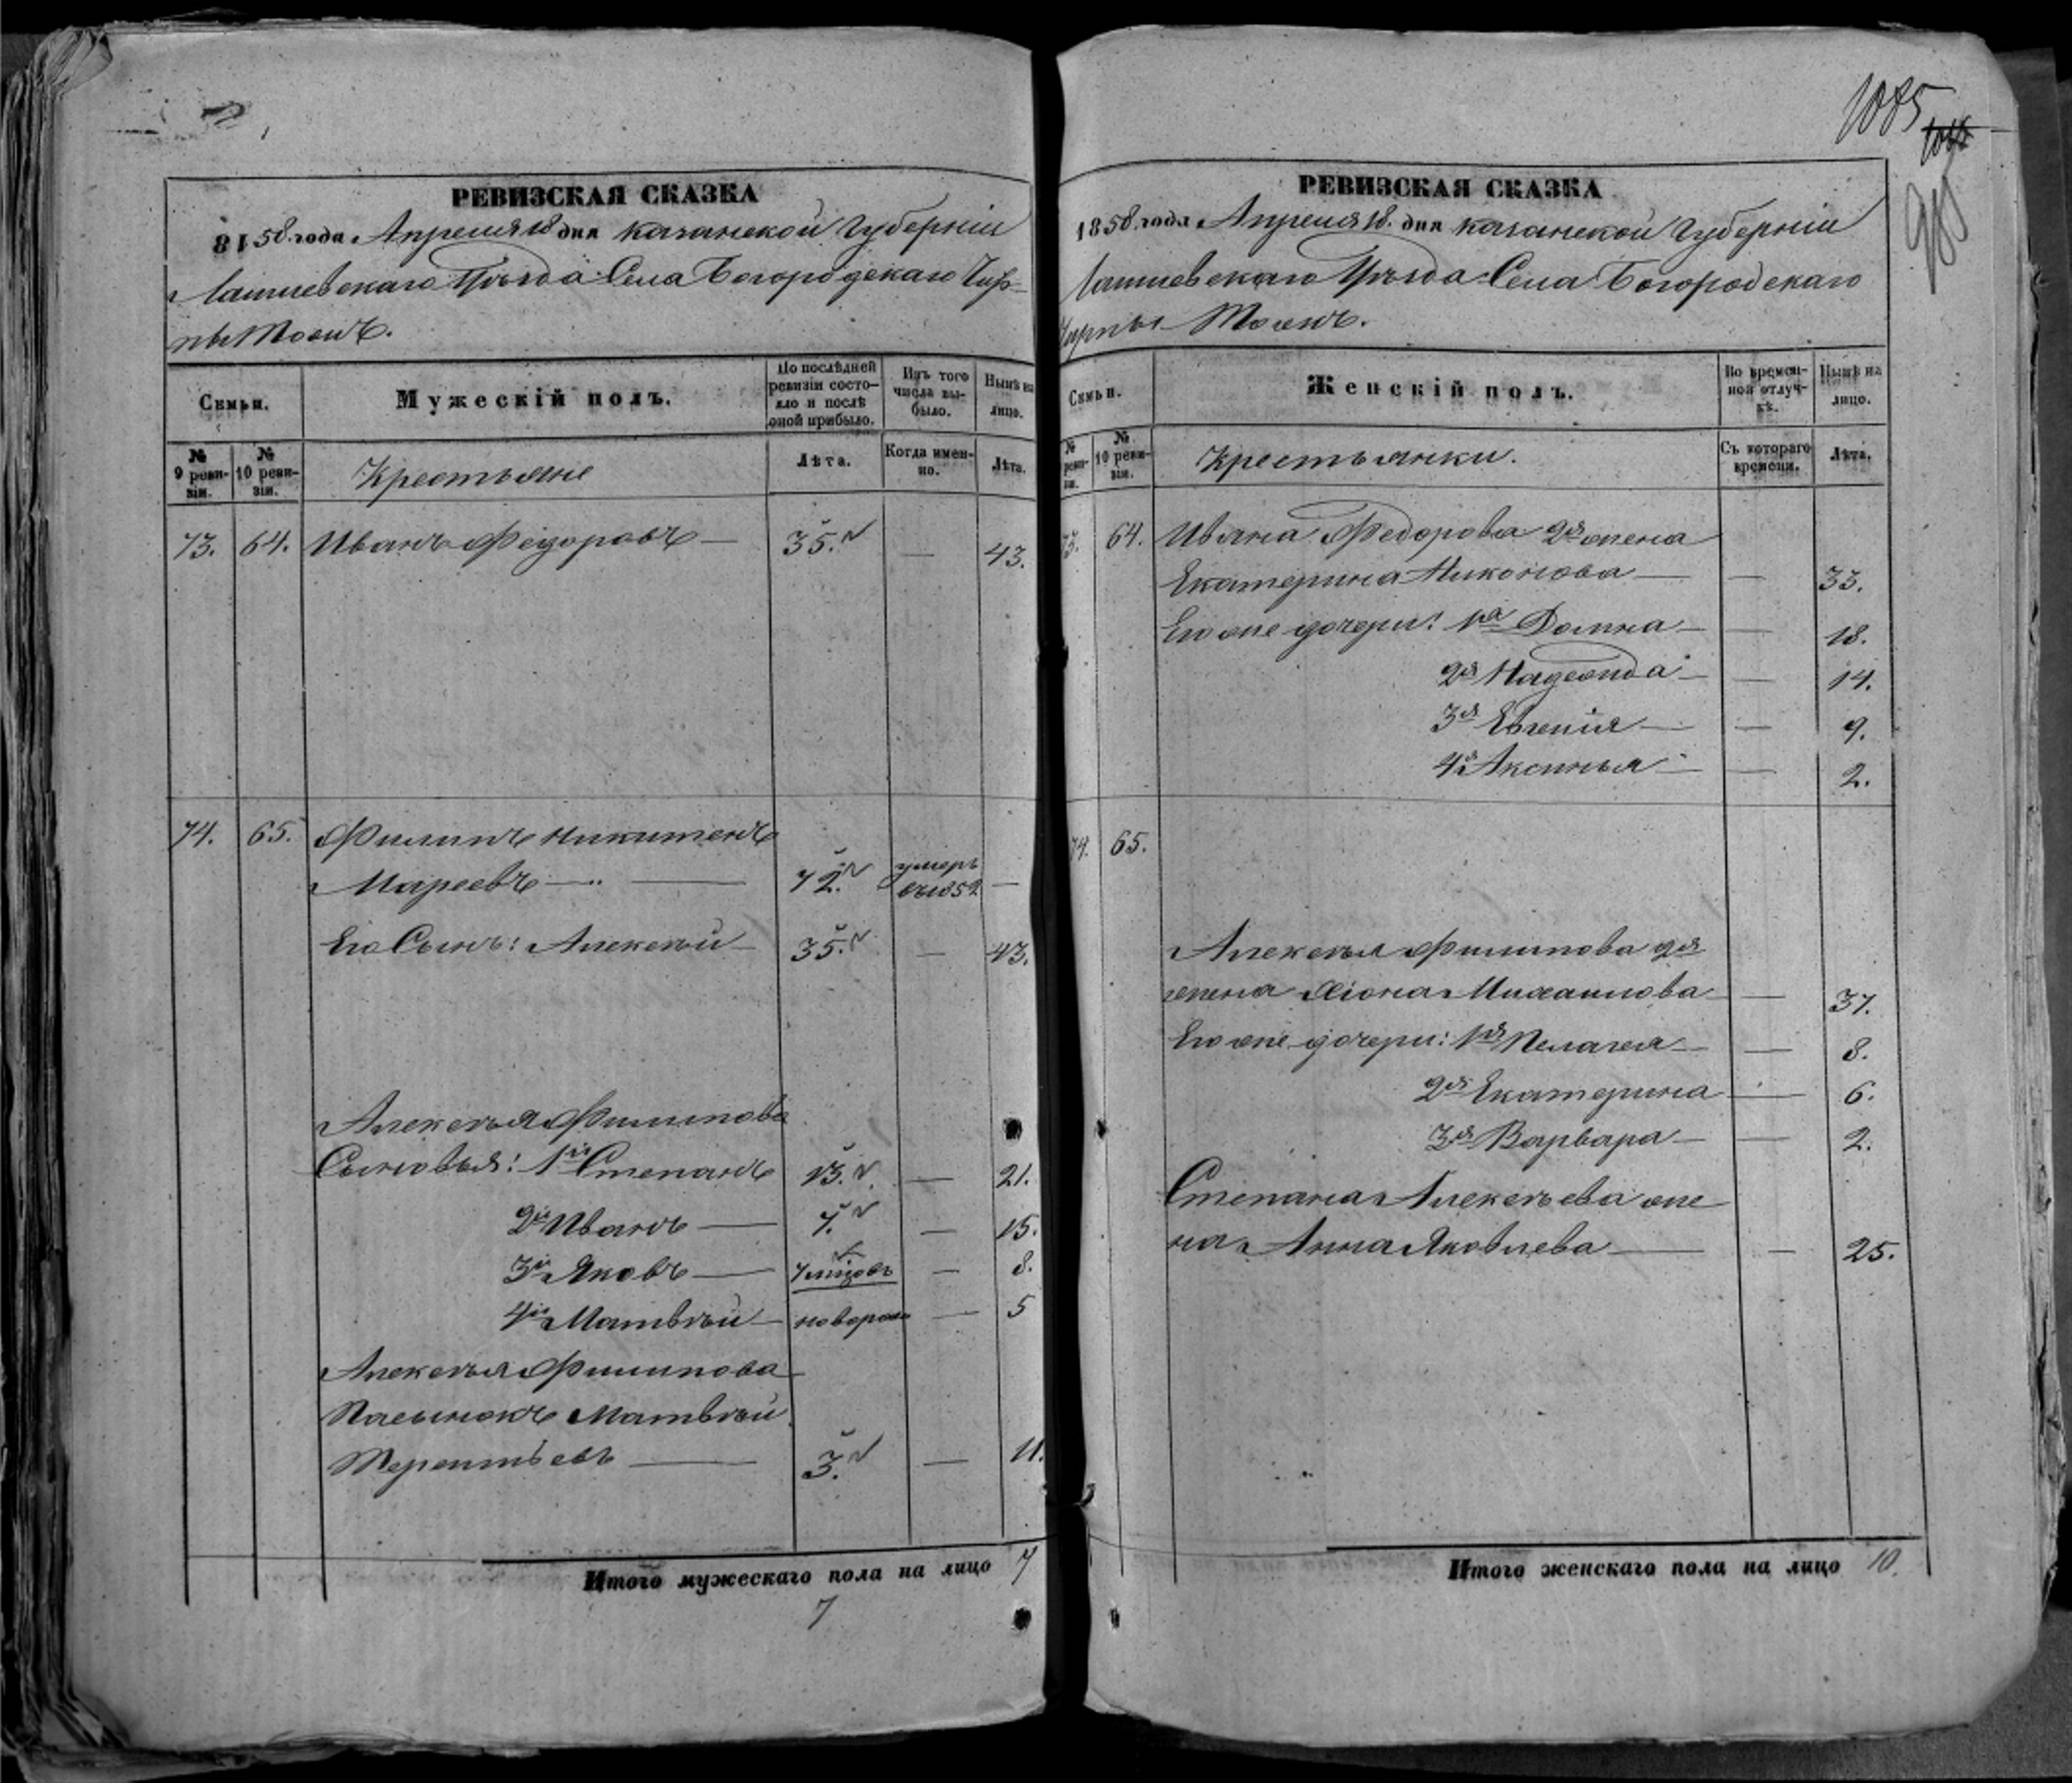 1085
РЕВИЗСКАЯ СКАЗКА
1858 года Апреля 18 дня Казанской Губерніи
Лаишевскаго Уѣзда Села Богородскаго Чир-
пы Тожъ.
Семьи.
Мужескій полъ.
До послѣдней ревизіи состо-
яло и послѣ оной прибыло.
Изъ того числа вы-
было.
Нынѣ на лицо.
№ 9 реви-
зіи.
№ 10 реви-
зіи.
Крестьяне
Лѣта.
Когда имен-
но.
Лѣта.
73. 64. Иванъ Федоровъ — 35. — 43.
74. 65. Филипъ Никитинъ
Мареевъ — 72. умеръ въ 1852 —
Его Сынъ: Алексѣй — 35. — 43.
Алексѣя Филипова
Сыновья: 1й Степанъ 13. — 21.
2й Иванъ — 7. — 15.
3й Яковъ — — 8.
4й Матвѣй — новорож — 5
Алексѣя Филипова
Пасынокъ Матвѣй
Терентьевъ — 3. — 11.
Итого мужескаго пола на лицо 7
7
РЕВИЗСКАЯ СКАЗКА
1858 года Апреля 18. дня Казанской Губерніи
Лаишевскаго Уѣзда Села Богородскаго
Чирпы Тожъ.
Семьи.
Женскій полъ.
Во времен-
ной отлуч-
кѣ.
Нынѣ на лицо.
№ реви-
зіи.
№ 10 реви-
зіи.
Крестьянки.
Съ котораго времени.
Лѣта.
73. 64. Ивана Федорова 2я жена
Екатерина Никонова — — 33.
Его же дочери: 1я Домна — — 18.
2я Надежда — — 14.
3я Евгенія — — 9.
4я Аксинья — — 2.
74. 65.
Алексѣя Филипова 2я
жена Хіона Михаилова — — 37.
Его же дочери: 1я Пелагея — — 8.
2я Екатерина — 6.
3я Варвара — — 2.
Степана Алексѣева же-
на Анна Яковлева — — 25.
Итого женскаго пола на лицо 10.